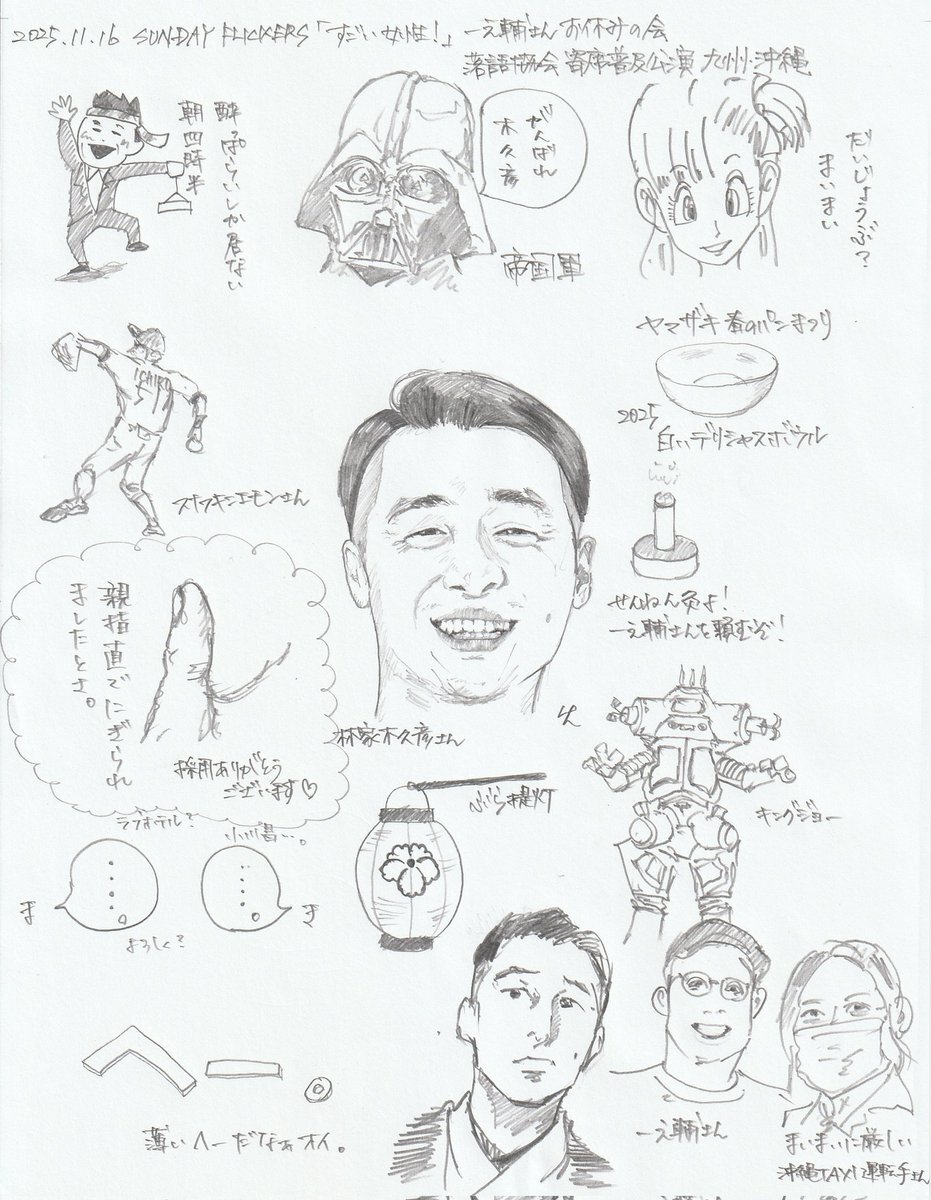 2025.11.16 SUNDAY FLICKERS「すごい女性!」一之輔さんお休みの会
落語協会 寄席普及公演 九州・沖縄
酔っぱらいしか居ない
朝四時半
がんばれ
木久彦
帝国軍
だいじょうぶ?
まいまい
ヤマザキ 春のパンまつり
2025
白いデリシャスボウル
ICHIRO
51
スナフキンエモンさん
せんねん灸よ!
一之輔さんを頼むぞ!
親指直でにぎられ
ましたとさ。
採用ありがとう
ございます♡
林家木久彦さん
ぶら提灯
キングジョー
ラブホテル?
小川君…。
ま
き
よろしく?
へー。
薄いへーだなぁオイ。
一之輔さん
まいまいに厳しい
沖縄TAXI運転手さん